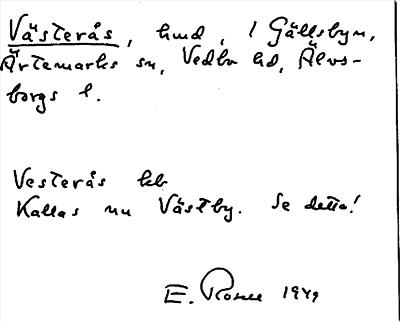 Västerås, hmd, i Gällsbyn,
Ärtemarks sn, Vedbo hd, Älvs-
borgs l.
Vesterås kb
Kallas nu Västby. Se detta!
E. Rosell 1949